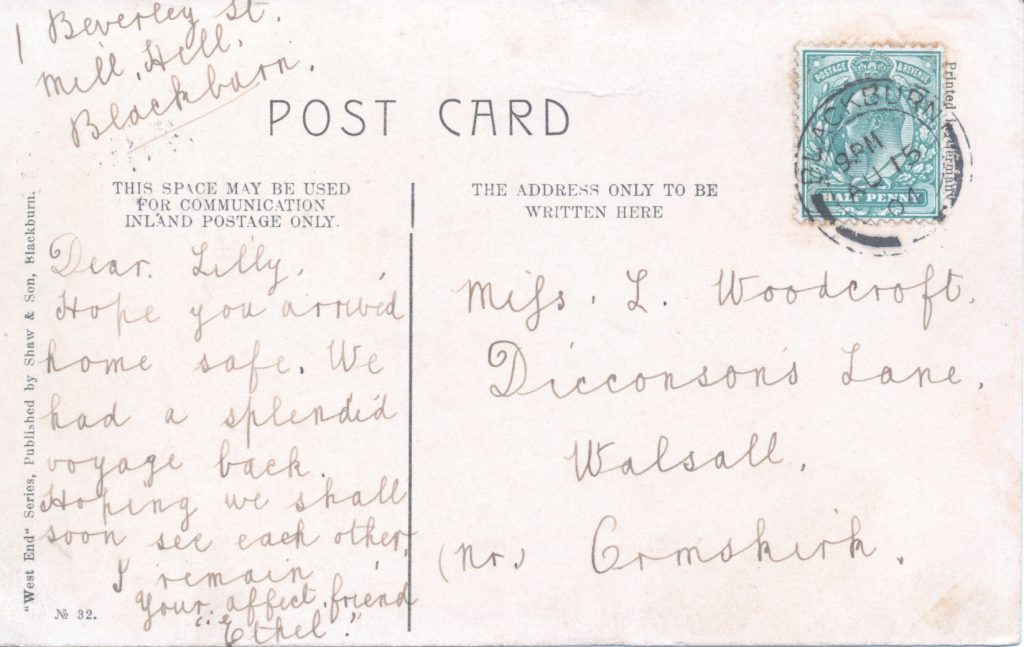 1 Beverley St.
Mill, Hill,
Blackburn.
POST CARD
THIS SPACE MAY BE USED
FOR COMMUNICATION
INLAND POSTAGE ONLY.
THE ADDRESS ONLY TO BE
WRITTEN HERE
POSTAGE & REVENUE
HALF PENNY
BLACKBURN
9 PM
15
04
Printed in Germany
"West End" Series, Published by Shaw & Son, Blackburn.
Dear. Lilly,
Hope you arrived
home safe. We
had a splendid
voyage back.
Hoping we shall
soon see each other,
I remain
Your affect. friend
"Ethel".
№ 32.
Miss. L. Woodcroft,
Dicconson's Lane,
Walsall,
(Nr.) Ormskirk.